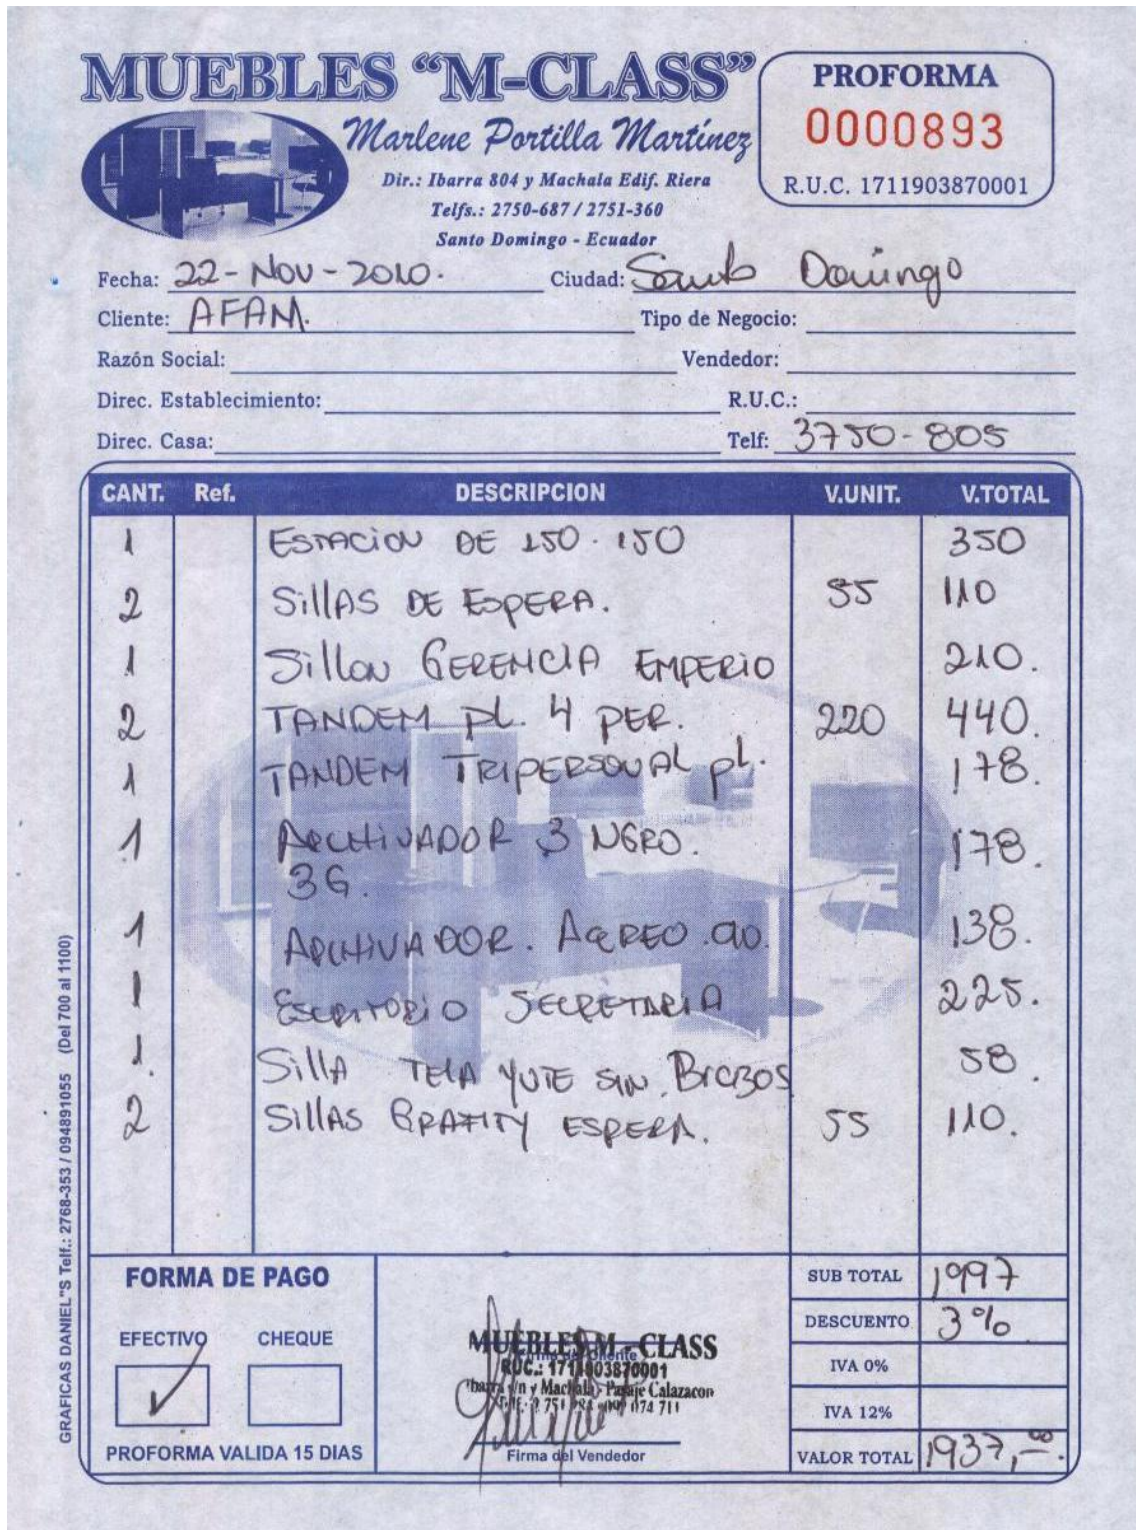 MUEBLES “M-CLASS”
Marlene Portilla Martínez
Dir.: Ibarra 804 y Machala Edif. Riera
Telfs.: 2750-687 / 2751-360
Santo Domingo - Ecuador
PROFORMA
0000893
R.U.C. 1711903870001
Fecha: 22-Nov-2010. Ciudad: Santo Domingo
Cliente: AFAM. Tipo de Negocio:
Razón Social: Vendedor:
Direc. Establecimiento: R.U.C.:
Direc. Casa: Telf: 3750-805
CANT. Ref. DESCRIPCION V.UNIT. V.TOTAL
1 ESTACION DE 150.150 350
2 SillAS DE ESPERA. 55 110
1 Sillon GERENCIA EMPERIO 210.
2 TANDEM pl. 4 PER. 220 440.
1 TANDEM TRIPERSONAL pl. 178.
1 ARCHIVADOR 3 NGRO. 178.
3G.
1 ARCHIVADOR. AEREO .90. 138.
1 ESCRITORIO SECRETARIA 225.
1. SillA TELA YUTE SIN. BrazOS 58.
2 SillAS GRAFITY ESPERA. 55 110.
FORMA DE PAGO
EFECTIVO CHEQUE
PROFORMA VALIDA 15 DIAS
MUEBLES M - CLASS
RUC.: 1711903870001
Ibarra s/n y Machala - Pasaje Calazacon
Firma del Cliente
Firma del Vendedor
SUB TOTAL 1997
DESCUENTO 3%
IVA 0%
IVA 12%
VALOR TOTAL 1937,00.
GRAFICAS DANIEL"S Telf.: 2768-353 / 094891055 (Del 700 al 1100)